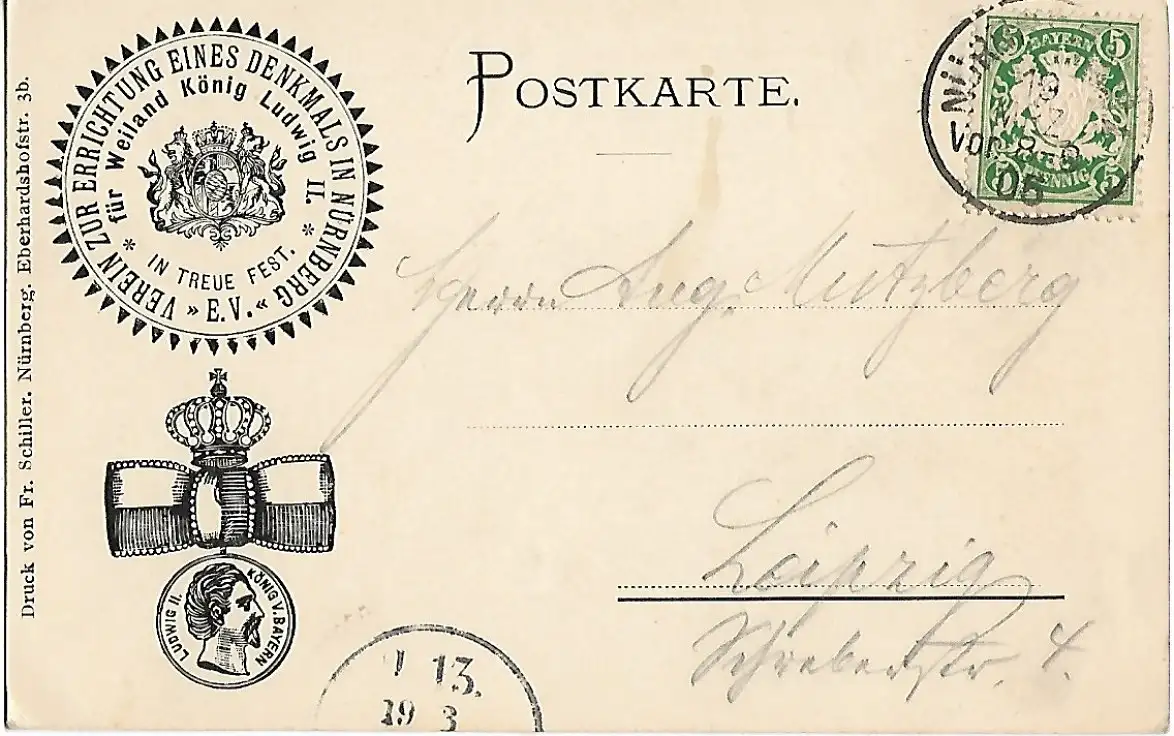 POSTKARTE.
VEREIN ZUR ERRICHTUNG EINES DENKMALS IN NÜRNBERG
für Weiland König Ludwig II.
* IN TREUE FEST. *
» E.V. «
BAYERN
5 5
PFENNIG
5 5
NÜRNB
19
Vor. 8-9
05
Herrn Aug. Mutzberg
Leipzig
Schreberstr. 4.
LUDWIG II. KÖNIG V. BAYERN
13.
19 3
Druck von Fr. Schiller, Nürnberg, Eberhardshofstr. 3b.